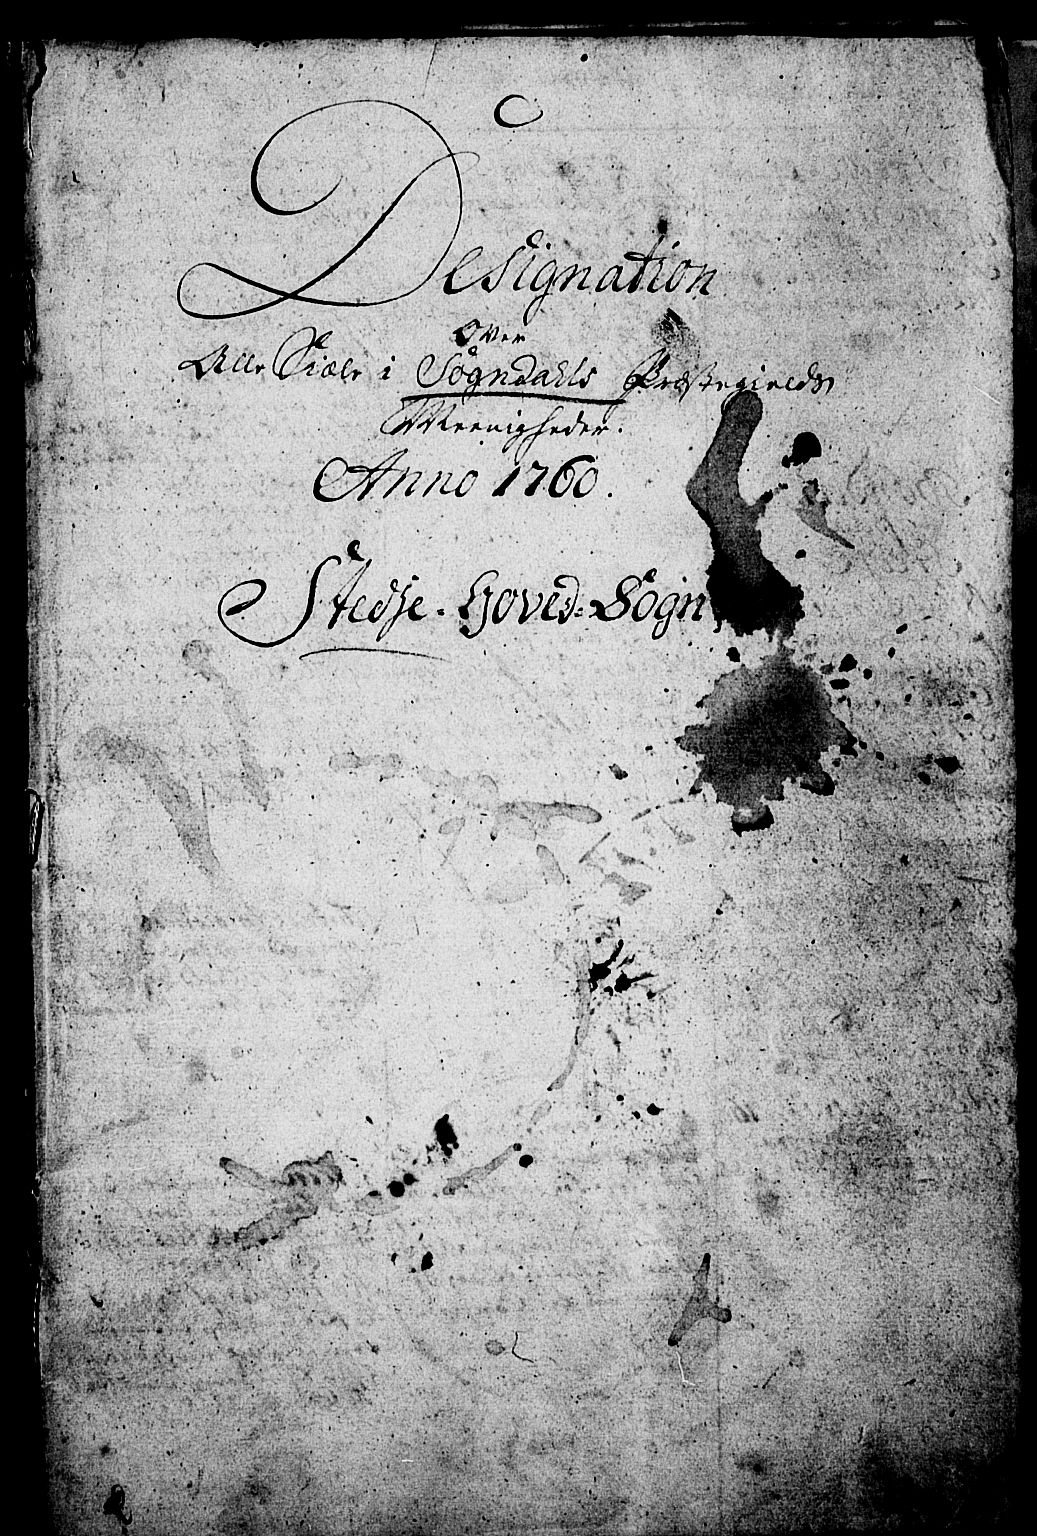 Designation
Over
Alle Siæle i Sogndahls Præstegields
Meenigheder.
Anno 1760.
Stedje-Hoved-Sogn